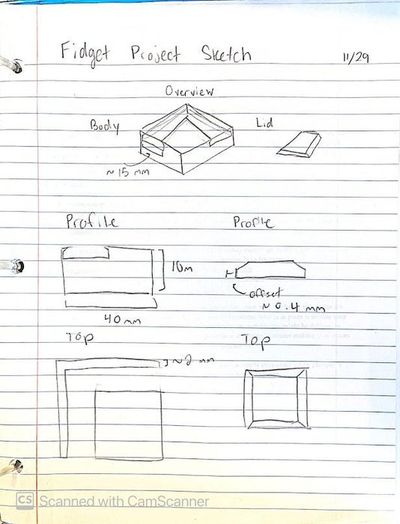 Fidget Project Sketch 11/29
Overview
Body Lid
~15 mm
Profile Profile
10m
offset
~0.4 mm
40mm
Top Top
~2 mm
CS Scanned with CamScanner